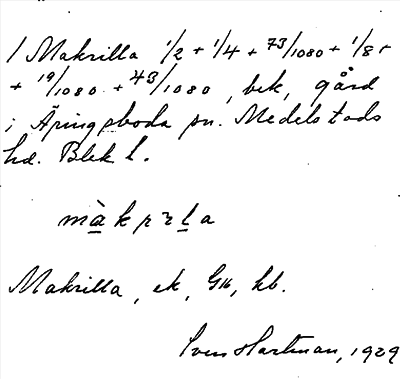 1 Makrilla 1/2 + 1/4 + 73/1080 + 1/8 +
+ 19/1080 + 43/1080, bek, gård
i Äringsboda sn. Medelstads
hd. Blek l.
màkprla
Makrilla, ek, Gk, kb.
Sven Hartman, 1929